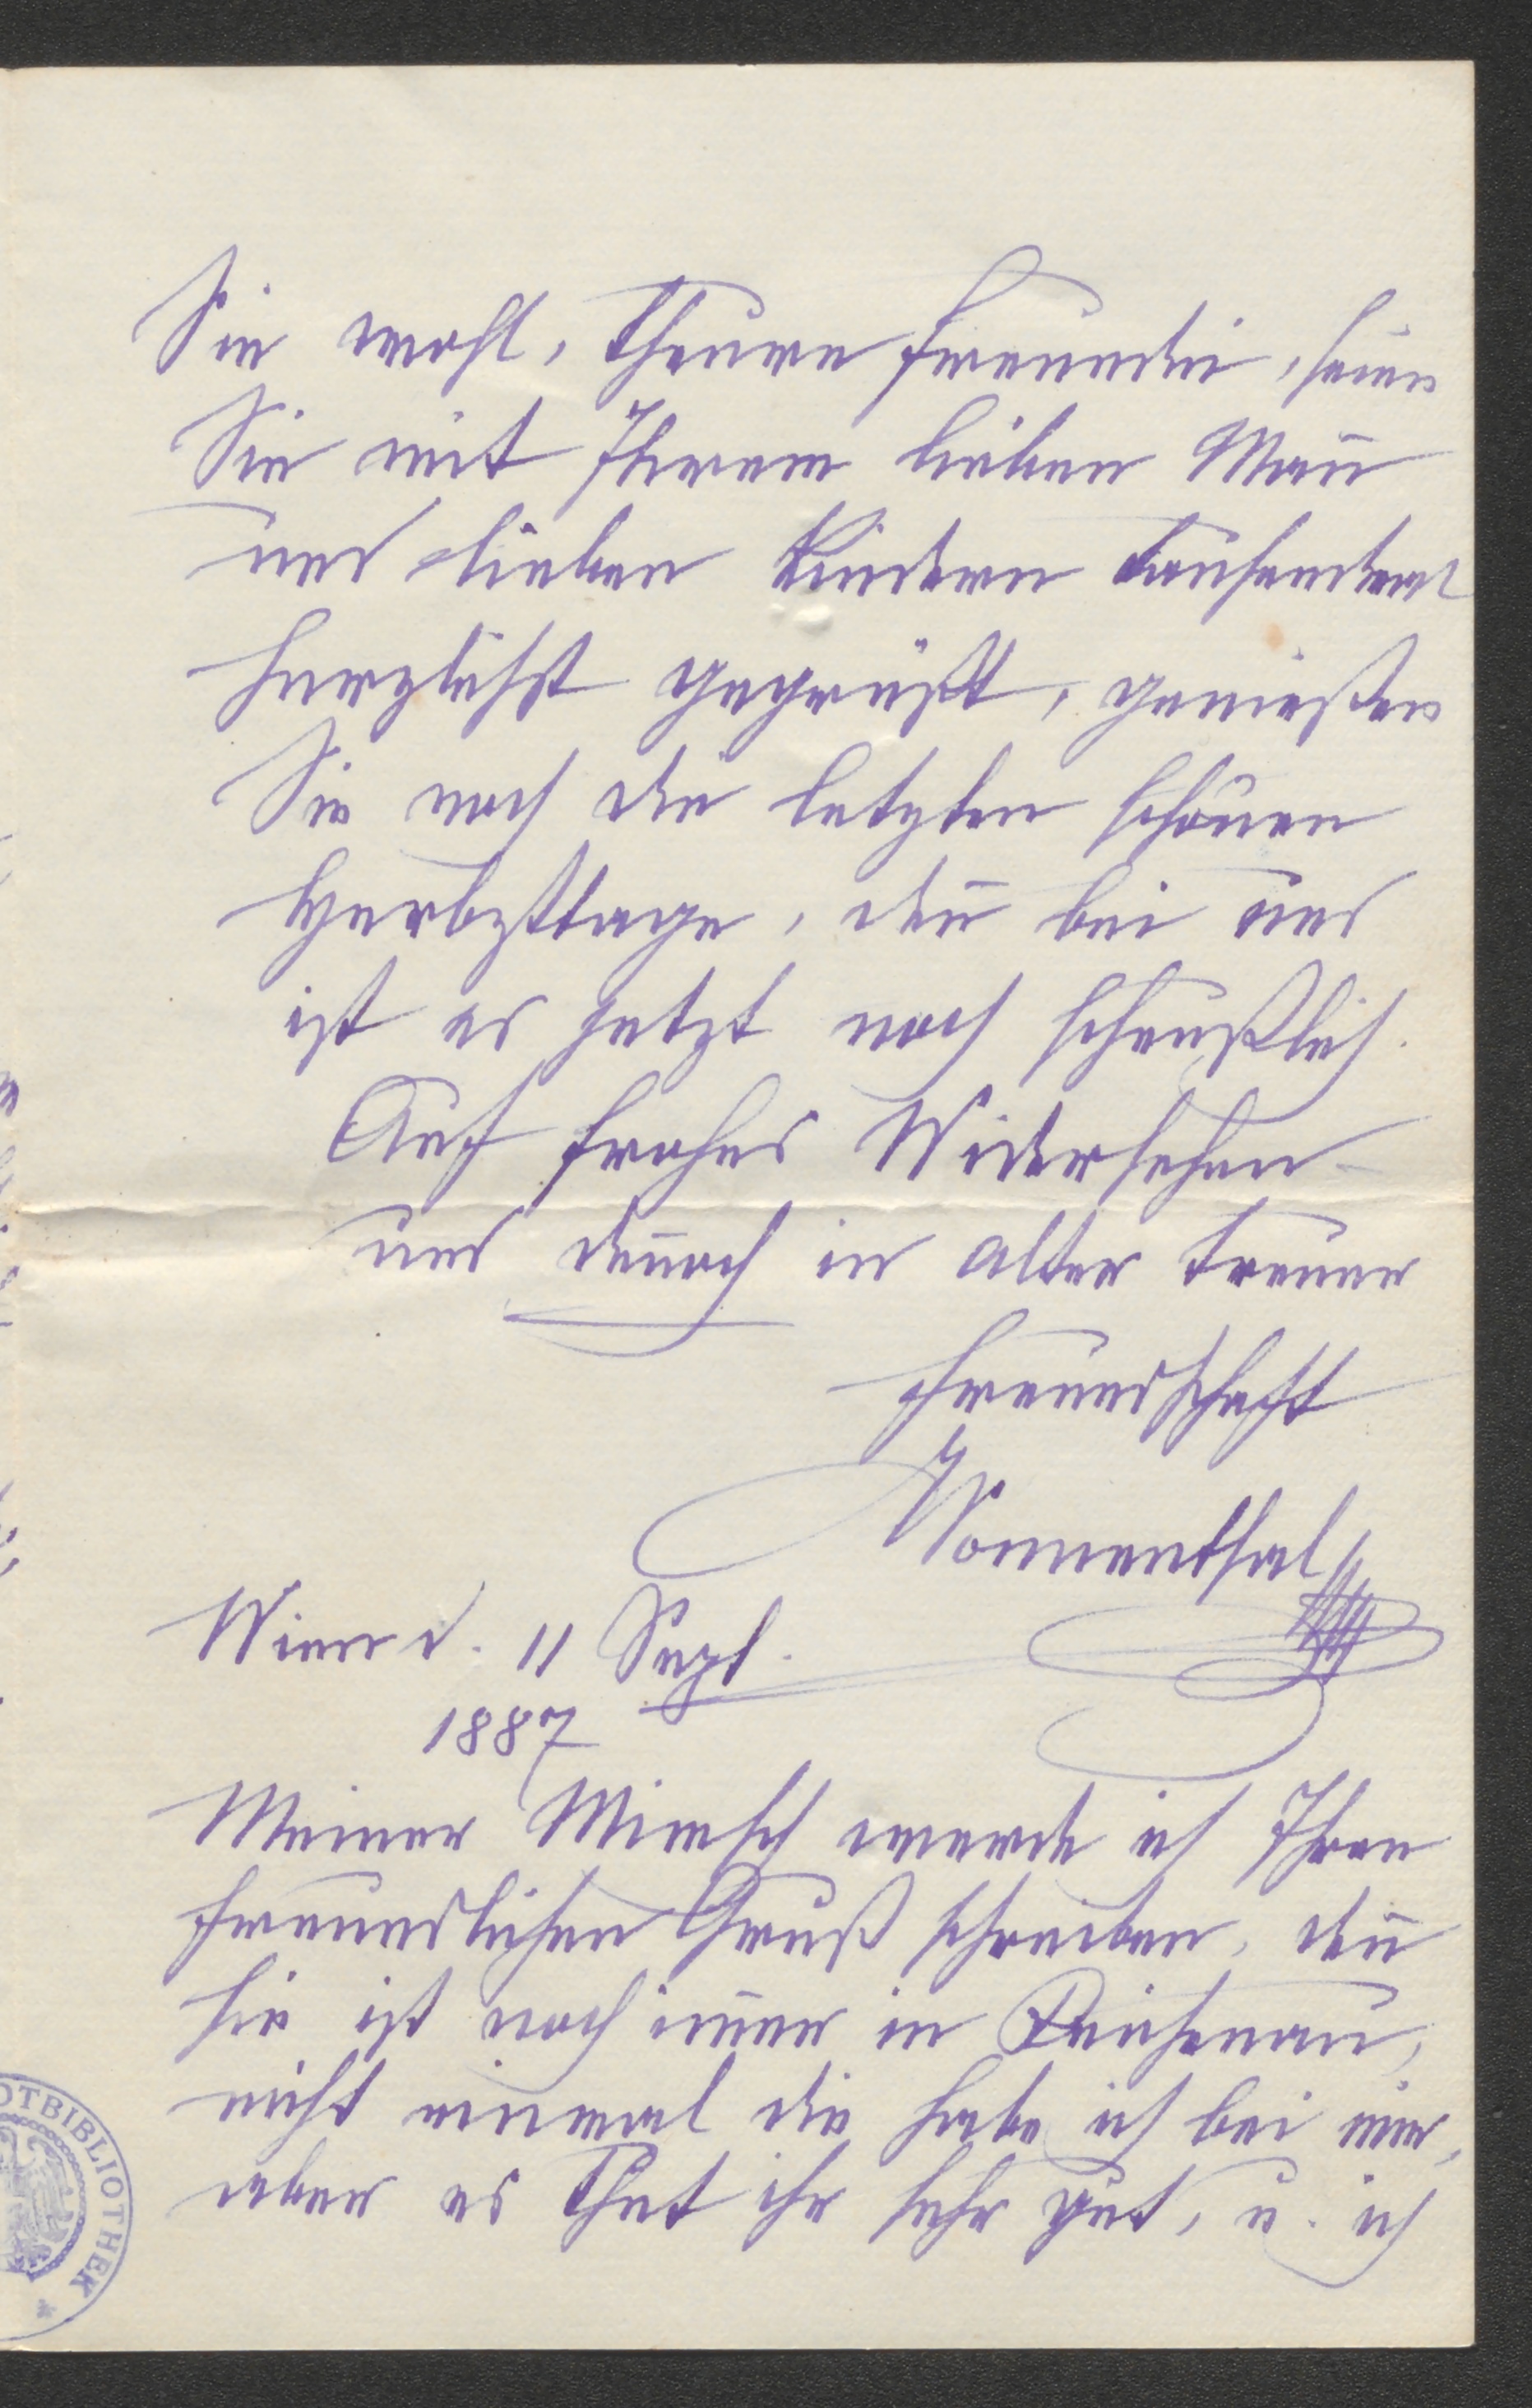 Sie wohl, theure Freundin, seien
Sie mit Ihrem lieben Man̅
und lieben Kindern tausendmal
herzlichst gegrüßt, genießen
Sie noch die letzten schönen
Herbsttage, den̅ bei uns
ist es jetzt noch scheußlich.
Auf frohes Widersehen
und den̅och in alter treuer
Freundschaft
Sonnenthal
Wien d. 11 Sept.
1887
Meiner werde ich Ihren
freundlichen Gruß schreiben, den̅
sie ist noch im̅er in Reichenau,
nicht einmal die habe ich bei mir,
aber es thut ihr sehr gut, u. ich
OTBIBLIOTHEK